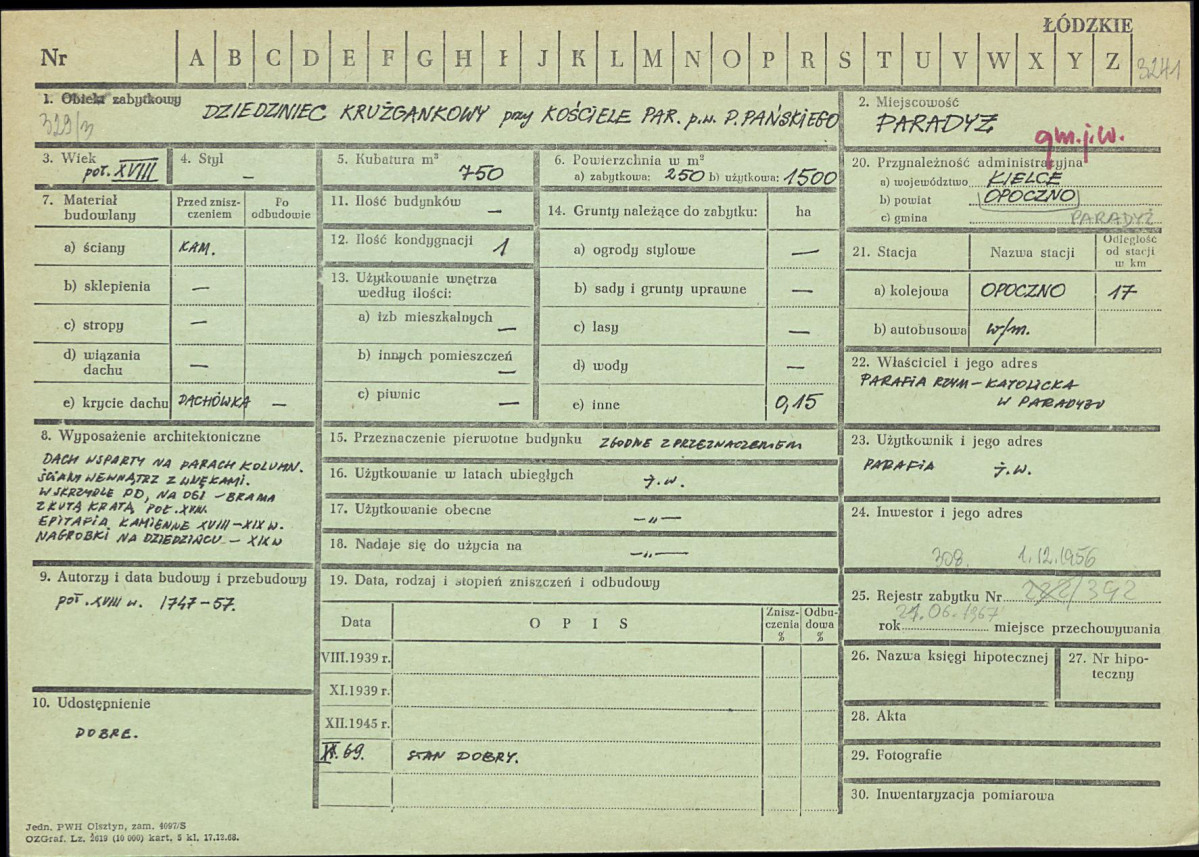 ŁÓDZKIE
Nr A B C D E F G H I J K L M N O P R S T U V W X Y Z 3241
1. Obiekt zabytkowy
329/3
DZIEDZINIEC KRUŻGANKOWY przy KOŚCIELE PAR. p.w. P.PAŃSKIEGO
2. Miejscowość
PARADYŻ
gm.j.w.
3. Wiek
poł. XVIII
4. Styl
—
5. Kubatura m³
750
6. Powierzchnia w m²
a) zabytkowa: 250 b) użytkowa: 1500
20. Przynależność administracyjna
a) województwo KIELCE
b) powiat OPOCZNO
c) gmina PARADYŻ
7. Materiał budowlany
Przed znisz-
czeniem
Po
odbudowie
a) ściany KAM.
b) sklepienia —
c) stropy —
d) wiązania
dachu —
e) krycie dachu DACHÓWKA —
11. Ilość budynków —
12. Ilość kondygnacji 1
13. Użytkowanie wnętrza
według ilości:
a) izb mieszkalnych —
b) innych pomieszczeń —
c) piwnic —
14. Grunty należące do zabytku: ha
a) ogrody stylowe —
b) sady i grunty uprawne —
c) lasy —
d) wody —
e) inne 0,15
21. Stacja Nazwa stacji Odległość
od stacji
w km
a) kolejowa OPOCZNO 17
b) autobusowa w/m.
22. Właściciel i jego adres
PARAFIA RZYM-KATOLICKA
W PARADYŻU
8. Wyposażenie architektoniczne
DACH WSPARTY NA PARACH KOLUMN.
ŚCIANY WEWNĄTRZ Z WNĘKAMI.
W SKRZYDLE PD, NA OSI – BRAMA
Z KUTĄ KRATĄ, POŁ. XVIII.
EPITAFIA KAMIENNE XVIII–XIX W.
NAGROBKI NA DZIEDZIŃCU – XIX W
15. Przeznaczenie pierwotne budynku ZGODNE Z PRZEZNACZENIEM
16. Użytkowanie w latach ubiegłych j.w.
17. Użytkowanie obecne —„—
18. Nadaje się do użycia na —„—
23. Użytkownik i jego adres
PARAFIA j.w.
24. Inwestor i jego adres
308. 1.12.1956
9. Autorzy i data budowy i przebudowy
poł. XVIII w. 1747–57.
19. Data, rodzaj i stopień zniszczeń i odbudowy
Data O P I S Znisz-
czenia
% Odbu-
dowa
%
VIII.1939 r.
XI.1939 r.
XII.1945 r.
69. STAN DOBRY.
25. Rejestr zabytku Nr 392
21.06.1967
rok miejsce przechowywania
26. Nazwa księgi hipotecznej
27. Nr hipo-
teczny
10. Udostępnienie
DOBRE.
28. Akta
29. Fotografie
30. Inwentaryzacja pomiarowa
Jedn. PWH Olsztyn, zam. 4097/S
OZGraf. Lz. 2619 (10 000) kart. 5 kl. 17.12.68.